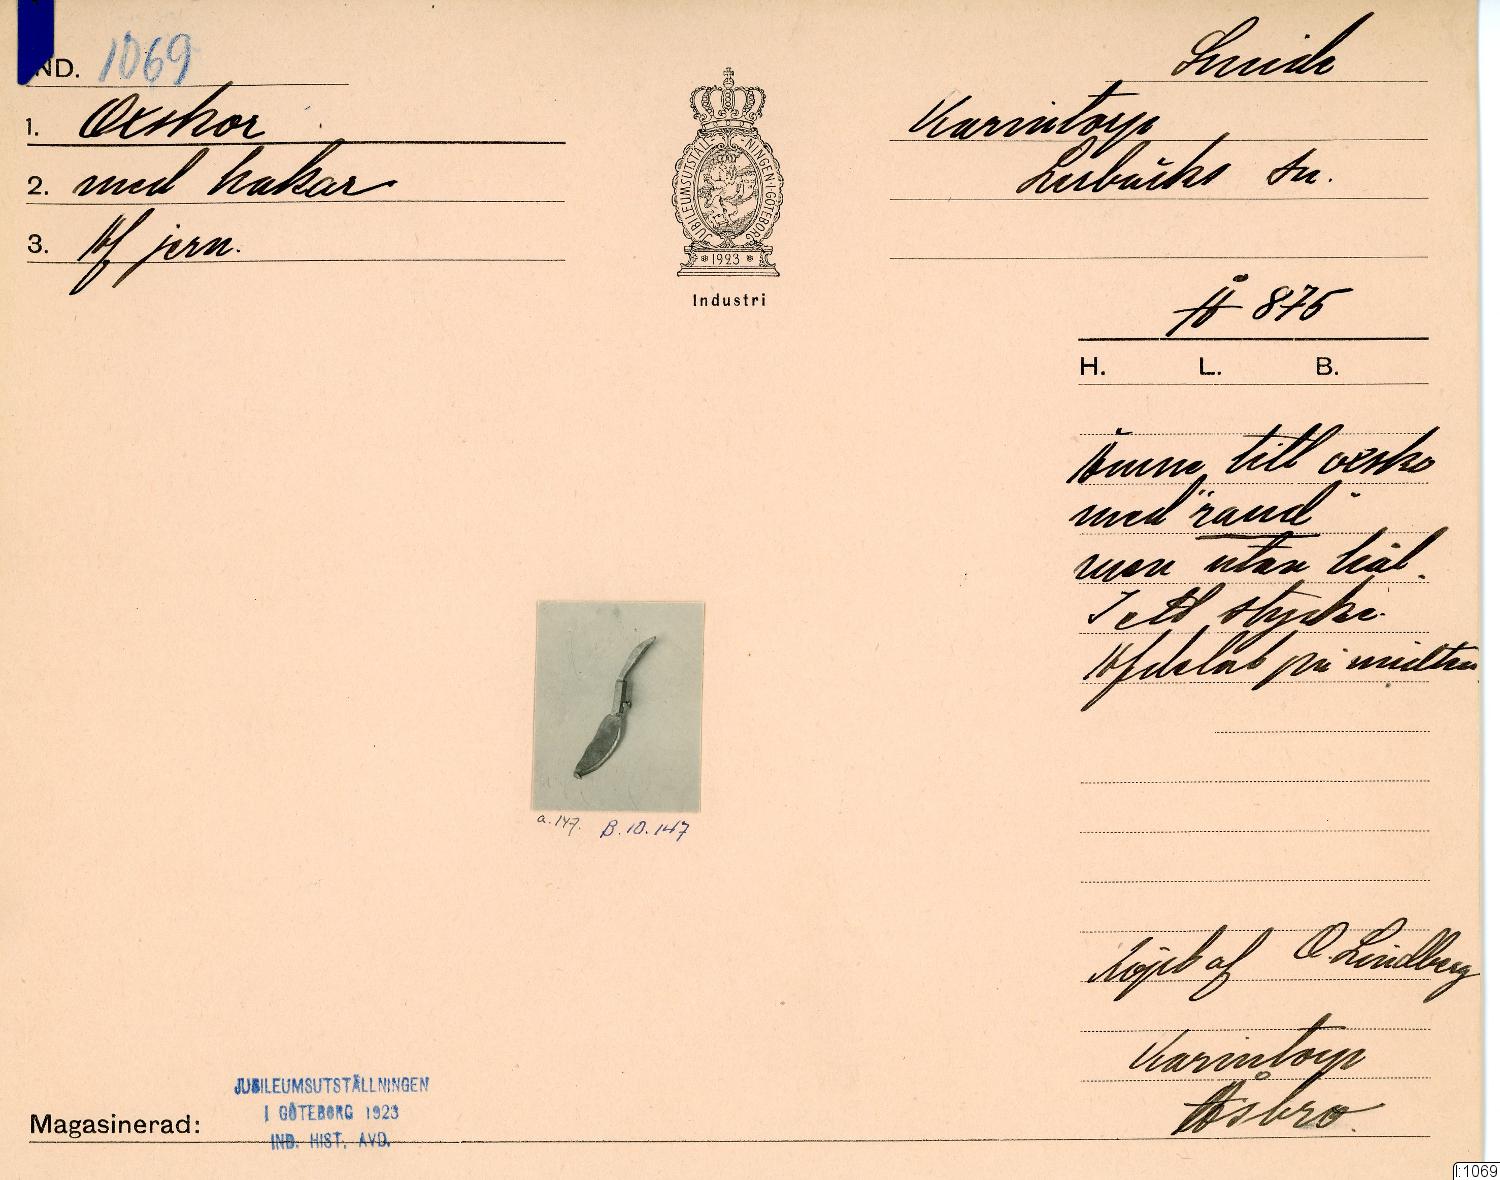 IND. 1069
1. Oxskor
2. med hakar
3. Af jern.
JUBILEUMSUTSTÄLLNINGEN I GÖTEBORG
1923
Industri
Smide
Karintorp
Lerbäcks sn.
Å 875
H. L. B.
Ämne till oxsko
med "rand"
men utan hål.
I ett stycke.
Afdelat på midten
Köpt af O. Lindberg
Karintorp
Åsbro.
a.147. B.10.147
JUBILEUMSUTSTÄLLNINGEN
I GÖTEBORG 1923
IND. HIST. AVD.
Magasinerad:
I:1069